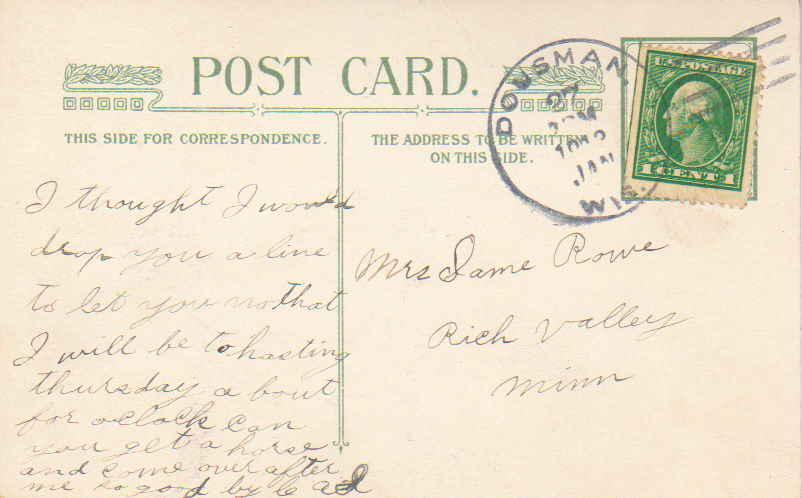 POST CARD.
THIS SIDE FOR CORRESPONDENCE.
THE ADDRESS TO BE WRITTEN
ON THIS SIDE.
DOUSMAN,
27
JAN
WIS.
U.S. POSTAGE
1 CENT 1
I thought I would
drop you a line
to let you no that
I will be to hasting
thursday a bout
for oclock can
you get a horse
and come over after
me so good by
Mrs Jame Rowe
Rich Valley
Minn